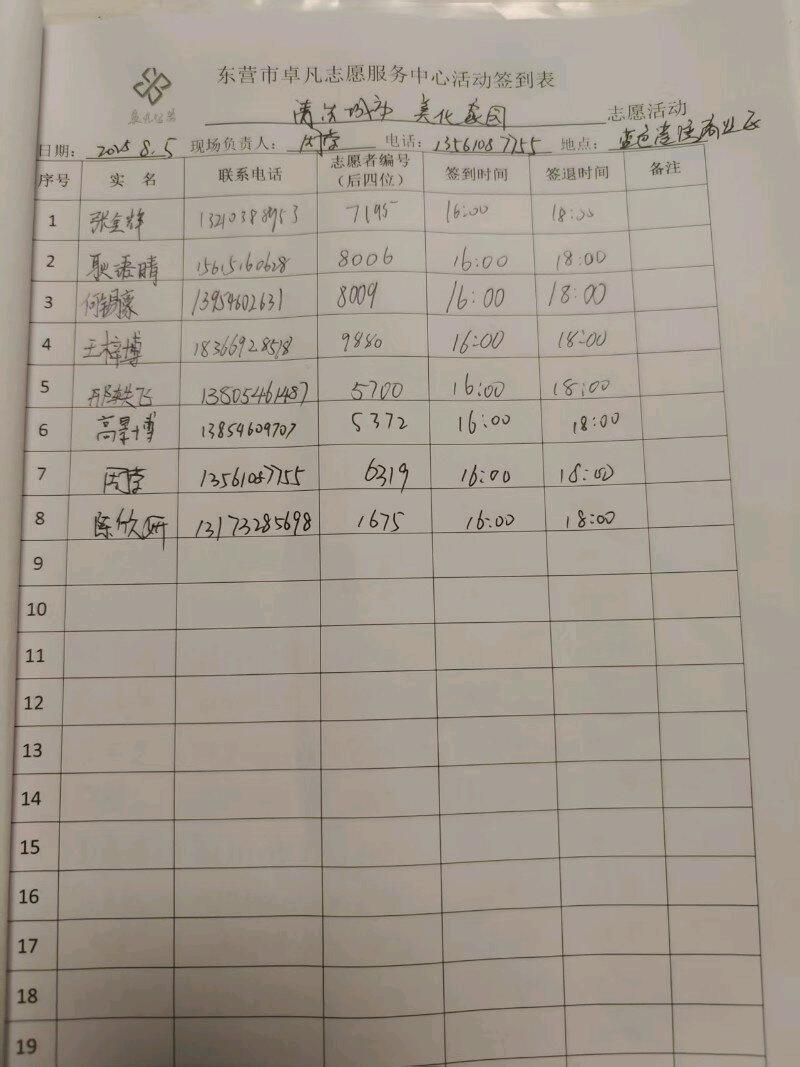 东营市卓凡志愿服务中心活动签到表
清洁城市 美化家园 志愿活动
日期: 2025 8.5 现场负责人: 电话: 13561087755 地点: 商业区
序号 实 名 联系电话 志愿者编号(后四位) 签到时间 签退时间 备注
1 张金锋 13210388953 7195 16:00 18:00
2 耿语晴 15615160628 8006 16:00 18:00
3 何锡濠 13954602631 8009 16:00 18:00
4 王梓博 18366928518 9880 16:00 18:00
5 飞 13805461487 5700 16:00 18:00
6 高昊博 13854609707 5372 16:00 18:00
7 13561087755 6319 16:00 18:00
8 陈欣妍 13173285698 1675 16:00 18:00
9
10
11
12
13
14
15
16
17
18
19